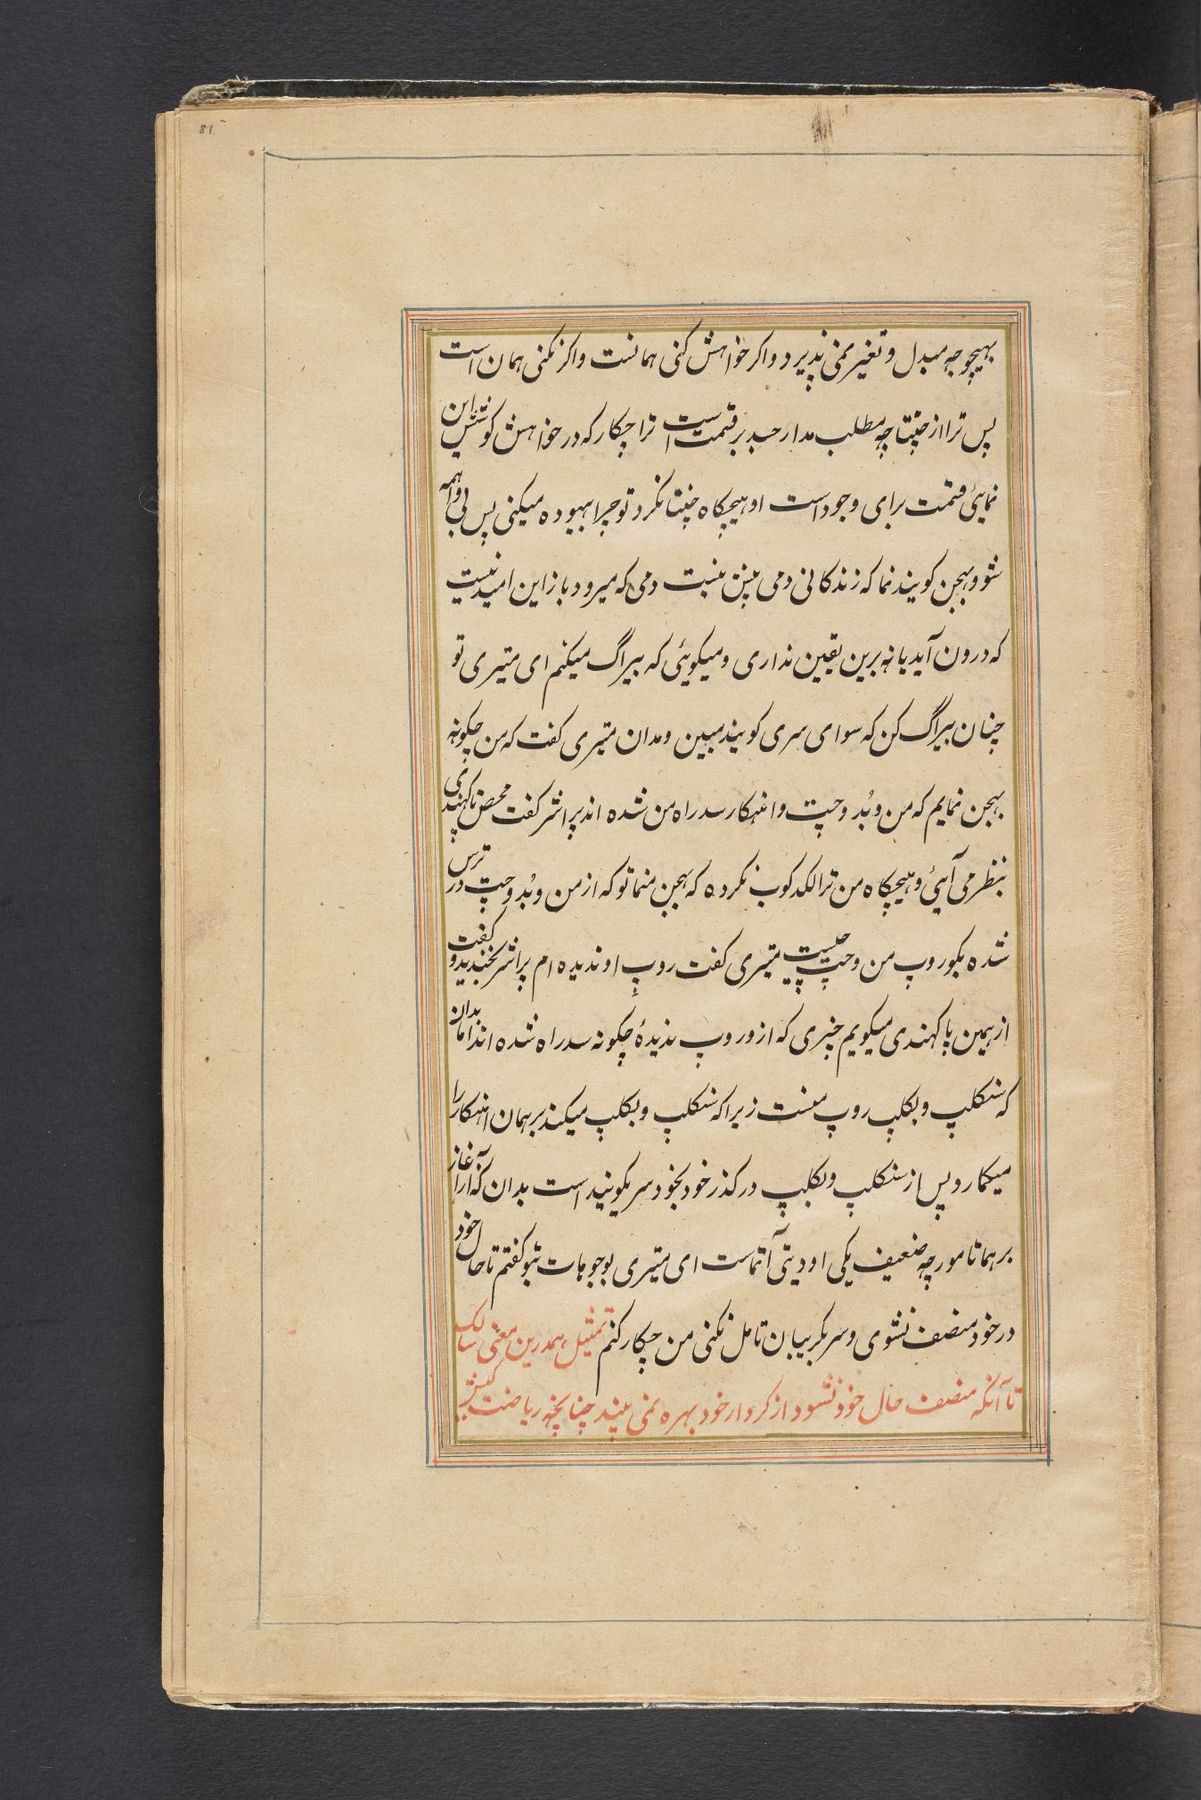 81
بهیچوجه مبدل و تغیر نمی پذیرد و اکر خواهش کنی همانست و اکر نکنی همان است
پس ترا از چنتا چه مطلب مدار جسد بر قسمت است ترا چکار که در خواهش کوشش این
نمایی قسمت برای وجود است او هیچکاه چنتا نکرد تو چرا بیهوده میکنی پس بی واهمه
شو و بهجن کوبند نما که زندکانی دمی بیش نیست دمی که میرود باز این امید نیست
که درون آید یا نه برین یقین نداری و میکوئی که بیراگ میکنم ای متیری تو
چنان بیراگ کن که سوای سری کوبند مبین و مدان متیری کفت که من چکونه
بهجن نمایم که من و بُد و چت و انهکار سد راه من شده اند پراشر کفت محض پاکهندی
بنظر می آیی و هیچکاه من ترا لکدکوب نکرده که بهجن منما تو که از من و بُد و چت در ترس
شده بکو روپ من و چت چیست متیری کفت روپ او ندیده ام پراشر بخندید و کفت
از همین پاکهندی میکویم چیزی که ازو روپ ندیدهٔ چکونه سد راه شده اند اما بدان
که سنکلپ و بکلپ روپ منست زیرا که سنکلپ و بکلپ میکند بر همان انهکار را
میکمارد پس از سنکلپ و بکلپ در کذر خود بخود سر یکوبند است بدان که از آغاز
برهما تا مورچه ضعیف یکی اودیتی آتماست ای متیری بوجوهات بتو کفتم تا حال خود
در خود منصف نشوی و سر بکریبان تامل نکنی من چکار کنم تمثیل همدرین معنی سالک
تا آنکه منصف حال خود نشود از کردار خود بهره نمی بیند چنانچه ریاضت کیش